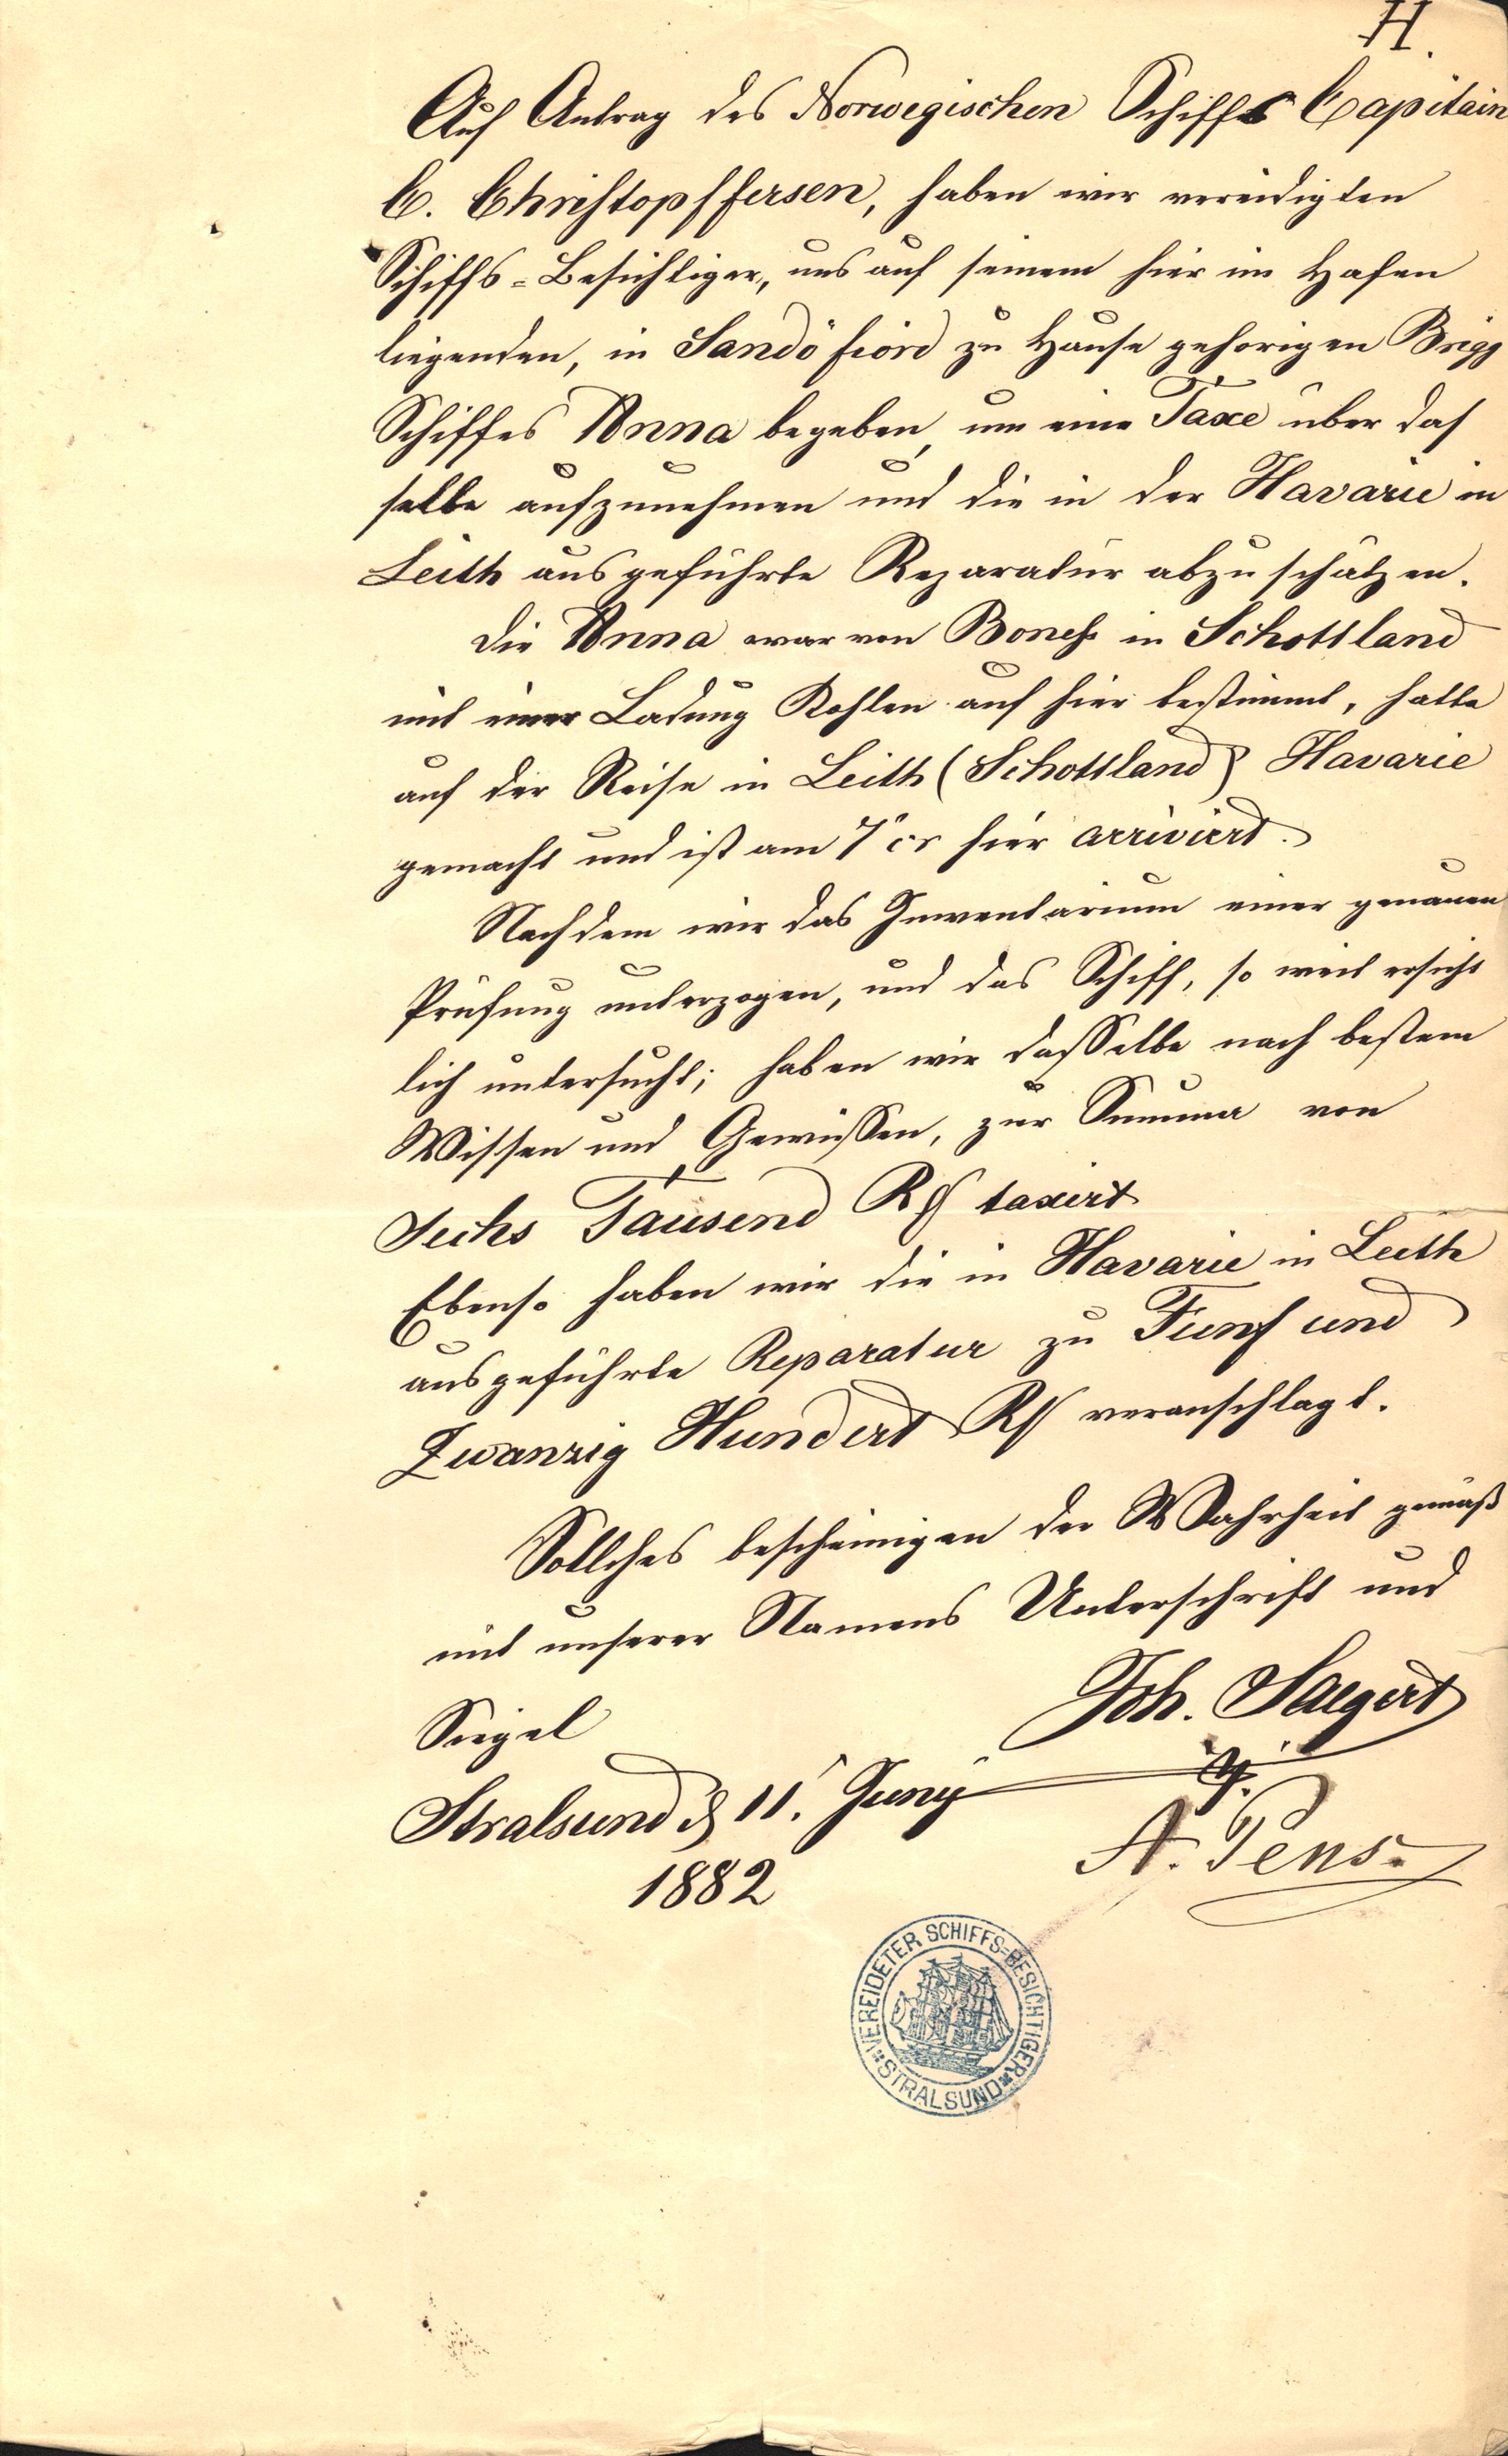 H.
Auf Antrag des Norwegischen Schiffs Capitain
C. Christopffersen, haben wir vereidigten
Schiffs=Besichtiger, uns auf seinem hier im Hafen
liegenden, in Sandöfiord zu Hause gehorigen Brigg
Schiffes Anna begeben, um eine Taxe über das
selbe aufzunehmen und die in der Havarie in
Leith ausgeführte Reparatur abzuschätzen.
Die Anna war von Boness in Schottland
mit einer Ladung Kohlen auf hier bestimmt, hatte
auf der Reise in Leith (Schottland) Havarie
gemacht und ist am 7' cr hier arrivirt.
Nachdem wir das Inventarium einer genauen
Prüfung unterzogen, und das Schiff, so weit ersicht
lich untersucht; haben wir dasselbe nach bestem
Wissen und Gewissen, zur Summa von
Sechs Tausend taxirt
Ebenso haben wir die in Havarie in Leith
ausgeführte Reparatur zu Funf und
Zwanzig Hundert veranschlagt.
Sollches bescheinigen der Wahrheit gemäß
mit unserer Namens Unterschrift und
Siegel
Joh. Saegert
Stralsund d 11. Juny
A. Pens.
1882
VEREIDETER SCHIFFS=BESICHTIGER
STRALSUND